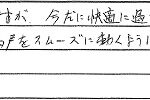 すが、今だに快適に過
戸をスムーズに動くように